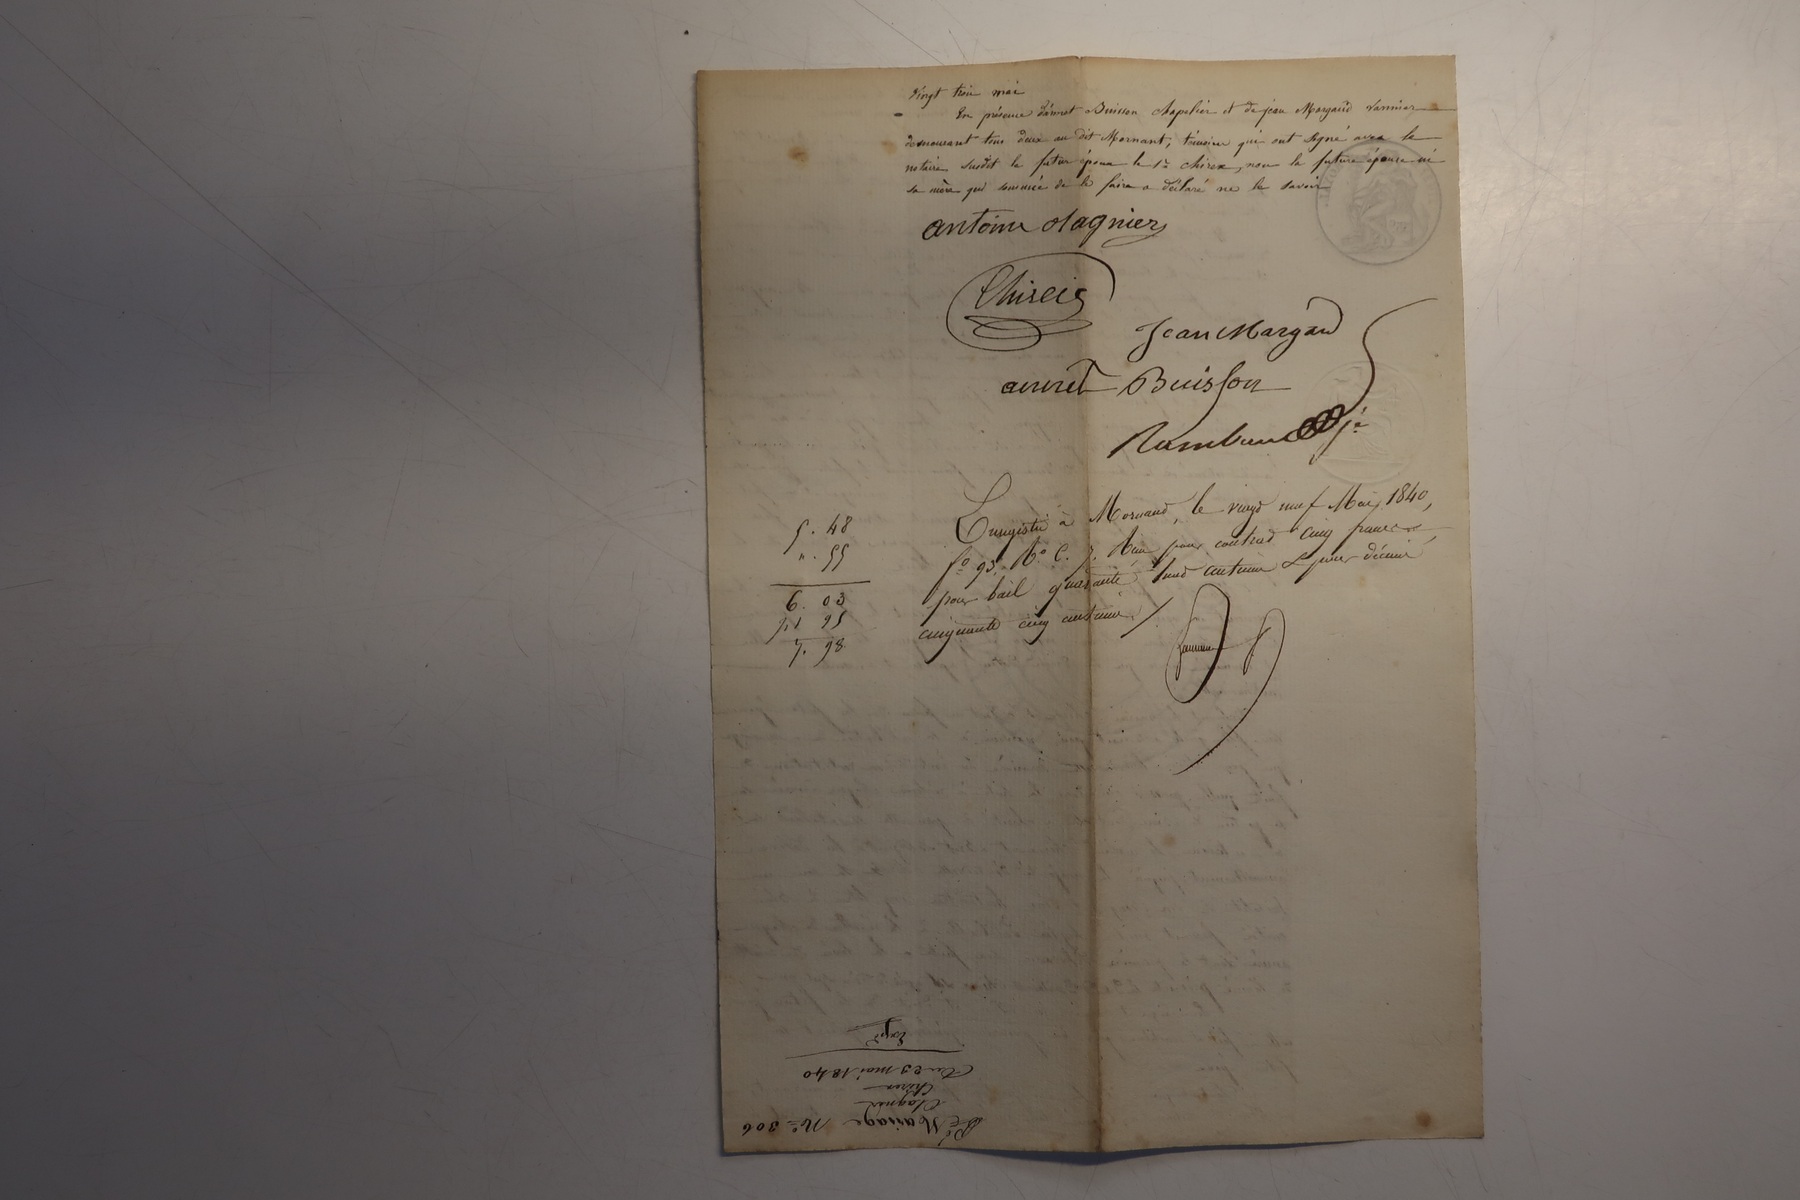 Vingt trois mai
En présence d'annet Buisson Chapelier et de jean Margaud Vannier
demeurant tous deux au dit Mornant, témoins qui ont signé avec le
notaire susdit le futur époux le Sr Chirex, non la future épouse ni
sa mère qui sommée de le faire a déclaré ne le savoir
antoine Clagnier
Chireix
Jean Margaud
annet Buisson
5. 48
". 55
6. 03
95
7. 98
Enregistré à Mornand, le vingt neuf Mai 1840,
fo 93, Ro C. 7, Reçu pour contrat cinq francs,
pour bail quarante huit centimes & pour décime
cinquante cinq centimes /.
Mariage No 306
Clagnier
Chirex
Du 23 mai 1840
Expé